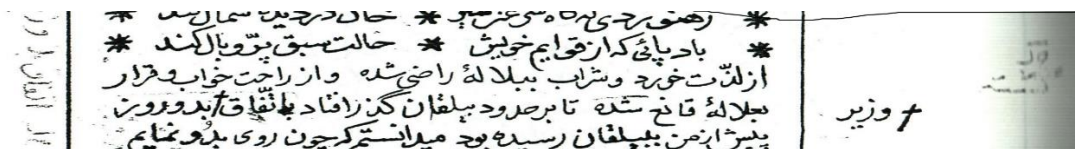 * رهنوردی که گاه سرعت سیر * خاک در دیدهٔ شمال کند *
* باد پائی که از قوایم خویش * حالت سبق پرّ و بال کند *
از لذّت خورد و شراب ببلالهٔ راضی شده و از راحت خواب و قرار
بعلالهٔ قانع شده تا بر حدود بیلقان گذر افتاد باتّفاق بدو روز
پیش از من ببیلقان رسیده بود میدانستم که چون روی بدو نمایم
وزیر